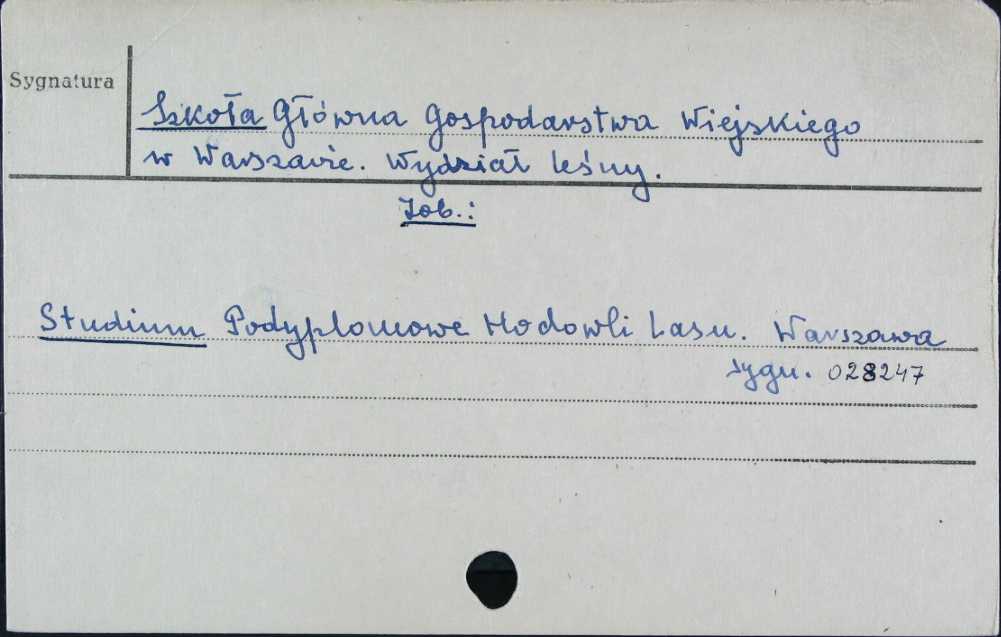 Sygnatura
Szkoła Główna Gospodarstwa Wiejskiego
w Warszawie. Wydział Leśny.
Zob.:
Studium Podyplomowe Hodowli Lasu. Warszawa
sygn. 028247